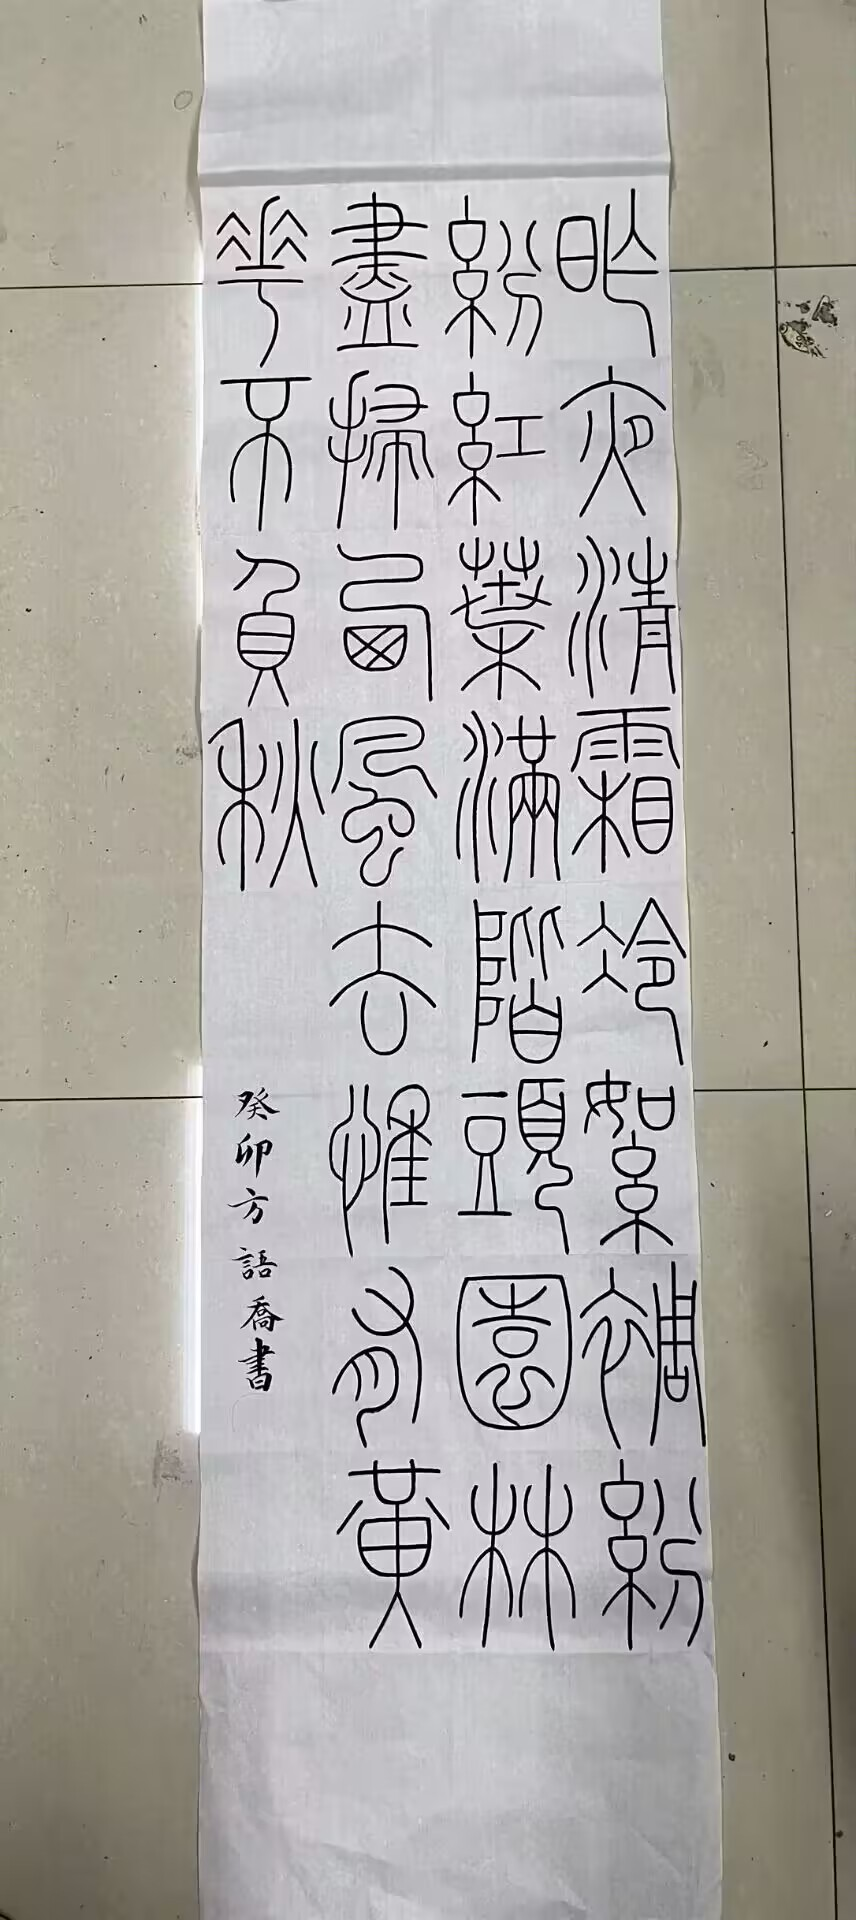 昨夜清霜冷絮裯紛
紛紅葉滿階頭園林
盡掃西風去惟有黃
花不負秋
癸卯方語喬書